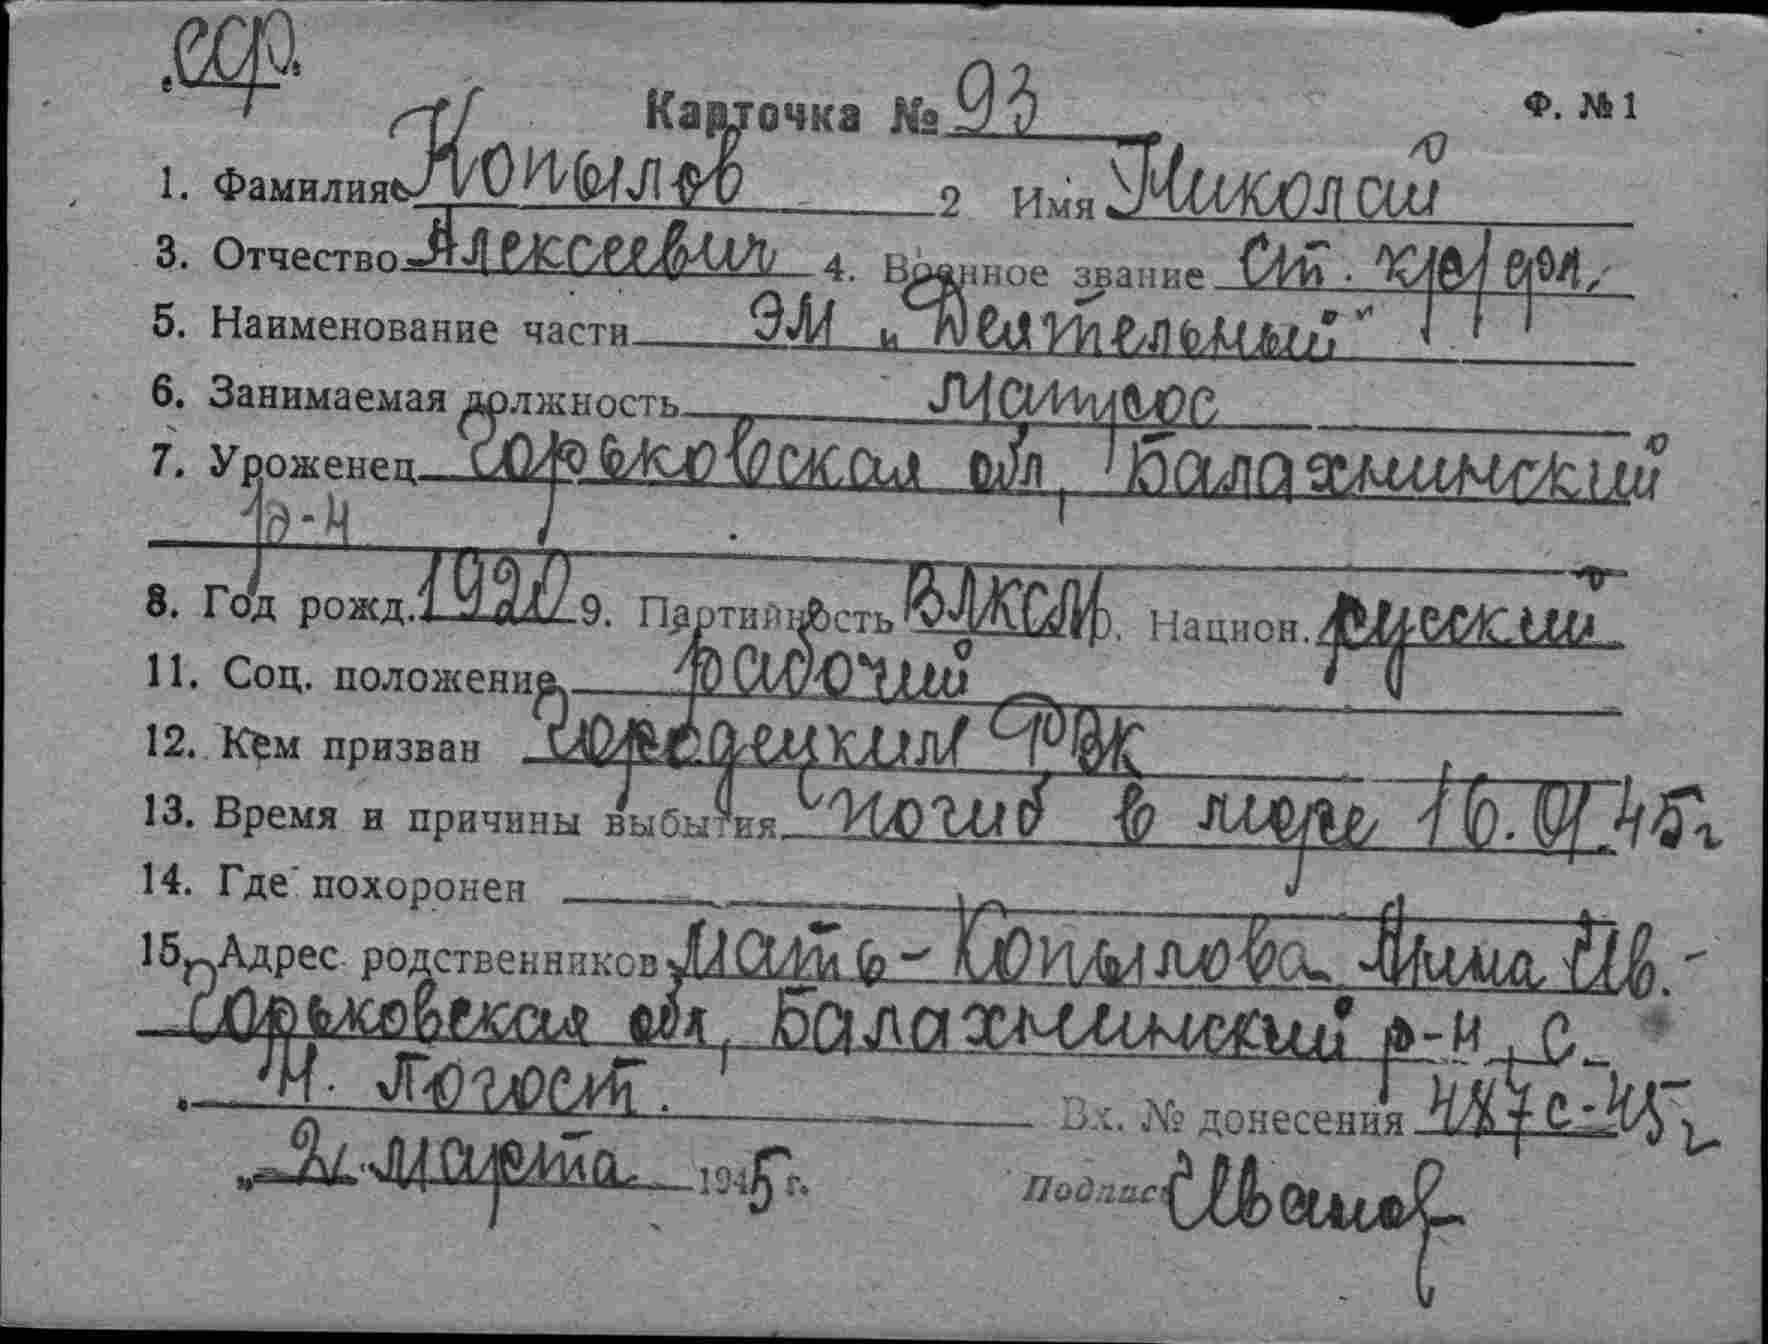 Карточка № 93 Ф. №1
1. Фамилия Копылов 2 Имя Николай
3. Отчество Алексеевич 4. Военное звание Ст. кр-
5. Наименование части ЭМ „Деятельный"
6. Занимаемая должность матрос
7. Уроженец Горьковская обл, Балахнинский
р-н
8. Год рожд. 1920 9. Партийность ВЛКСМ 10. Национ. русский
11. Соц. положение рабочий
12. Кем призван Городецким РВК
13. Время и причины выбытия Погиб в море 16.01.45г
14. Где похоронен
15. Адрес родственников Мать - Копылова Анна Ив. -
Горьковская обл, Балахнинский р-н, с.
Н. Погост.
Вх. № донесения 487с-45г
„2" марта 1945 г. Подпись Иванов